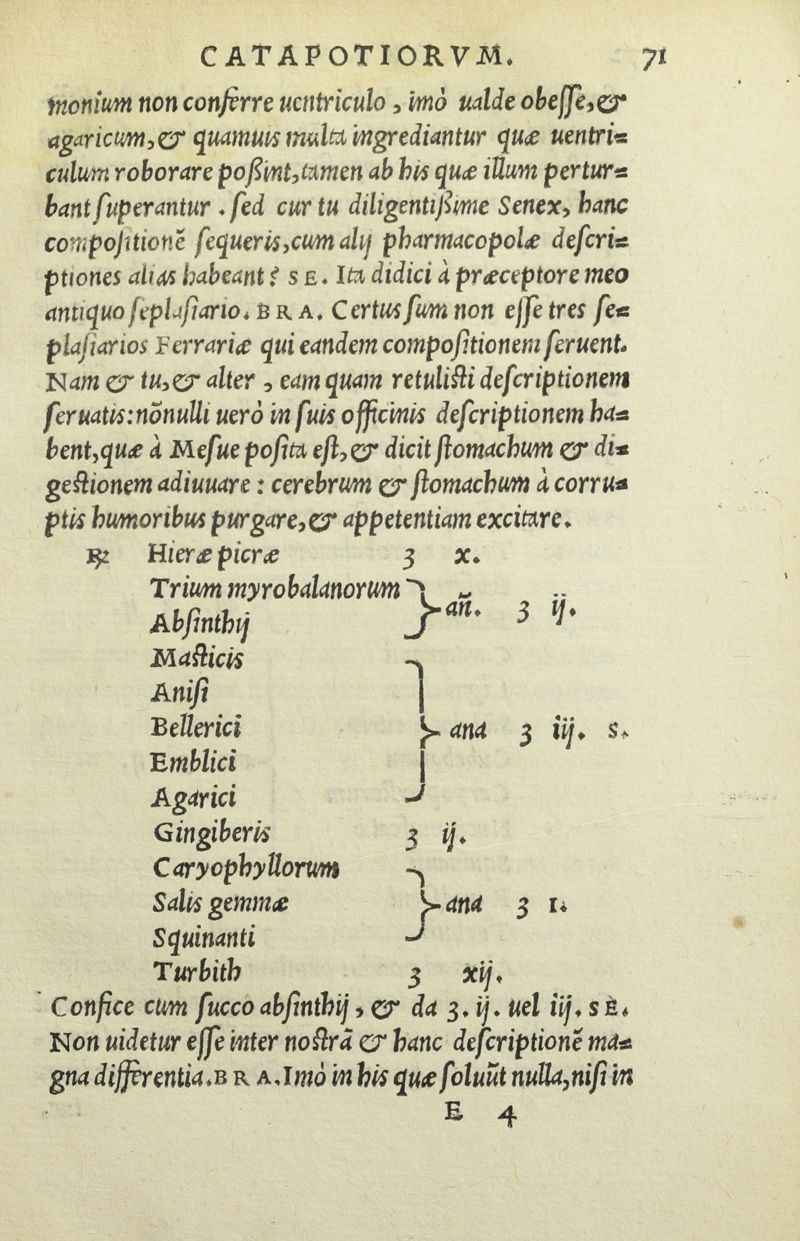 CATAPOTIORVM. 71
monium non conferre uentriculo, imò ualde obesse,&
agaricum,& quamuis multa ingrediantur quæ uentri=
culum roborare poßint,tamen ab his quæ illum pertur=
bant superantur . sed cur tu diligentißime Senex, hanc
compositionē sequeris,cum alij pharmacopolæ descri=
ptiones alias habeant? SE. Ita didici à præceptore meo
antiquo seplasiario. BRA. Certus sum non esse tres se=
plasiarios Ferrariæ qui eandem compositionem seruent.
Nam & tu,& alter , eam quam retulisti descriptionem
seruatis:nōnulli uerò in suis officinis descriptionem ha=
bent,quæ à Mesue posita est,& dicit stomachum & di=
gestionem adiuuare : cerebrum & stomachum à corru=
ptis humoribus purgare,& appetentiam excitare.
℞ Hieræ picræ ʒ x.
Trium myrobalanorum
Absinthij } añ. ʒ ij.
Masticis
Anisi
Bellerici } ana ʒ iij. s.
Emblici
Agarici
Gingiberis ʒ ij.
Caryophyllorum
Salis gemmæ } ana ʒ I.
Squinanti
Turbith ʒ xij.
Confice cum succo absinthij , & da ʒ. ij. uel iij. SE.
Non uidetur esse inter nostrā & hanc descriptionē ma=
gna differentia. BRA. Imò in his quæ soluūt nulla,nisi in
E 4